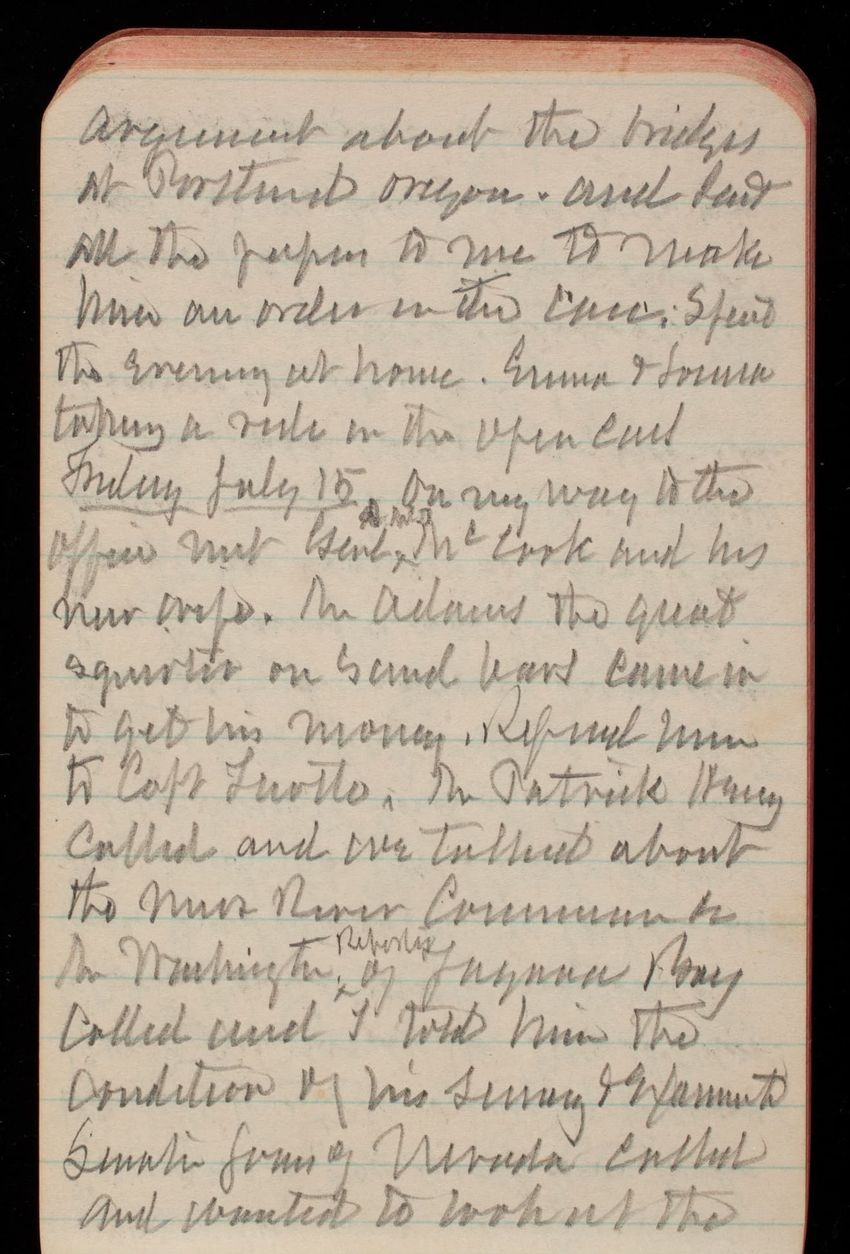 argument about the bridges
at Portland Oregon. and sent
all the papers to me to make
him an order in the case. Spent
the evening at home. Emma &
taking a ride in the open cars
Friday July 15. On my way to the
office met Genl McCook and his
new wife. Mr Adams the great
on Sand bars came in
to get his money. Referred him
to Capt. Mr Patrick Henry
called and we talked about
the Miss River Commission &c
Mr Washington Reporter of Bay
called and I told him the
condition of his survey &
Senator Jones of Nevada called
and wanted to look at the